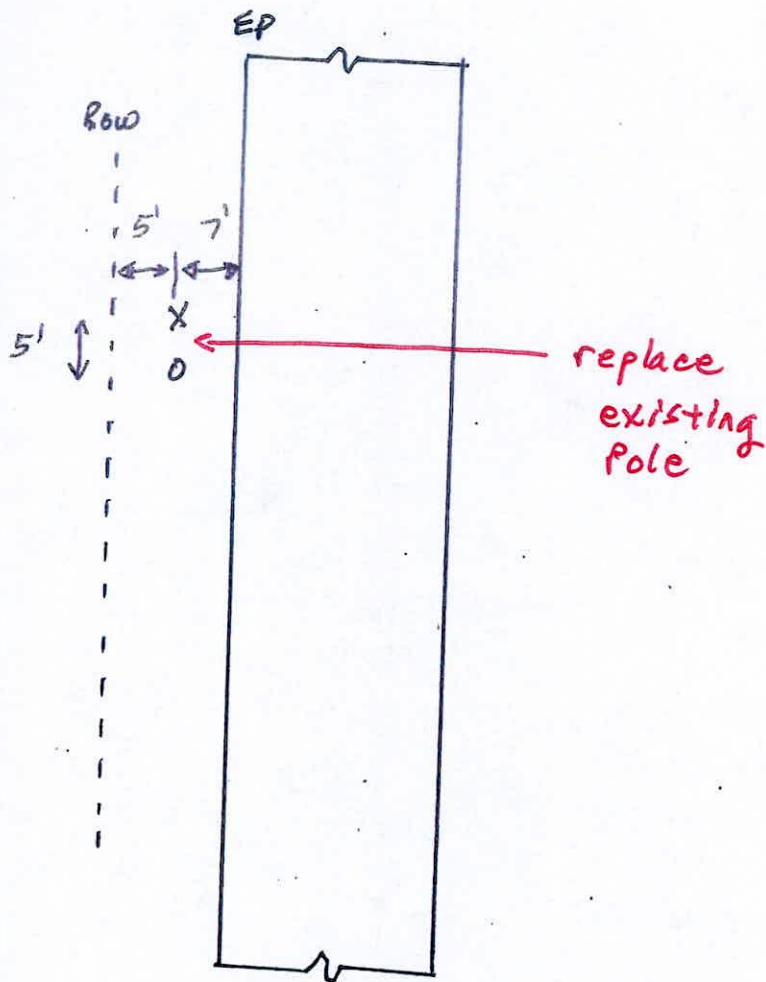 EP
Row
5' 7'
X
5'
O
replace
existing
Pole